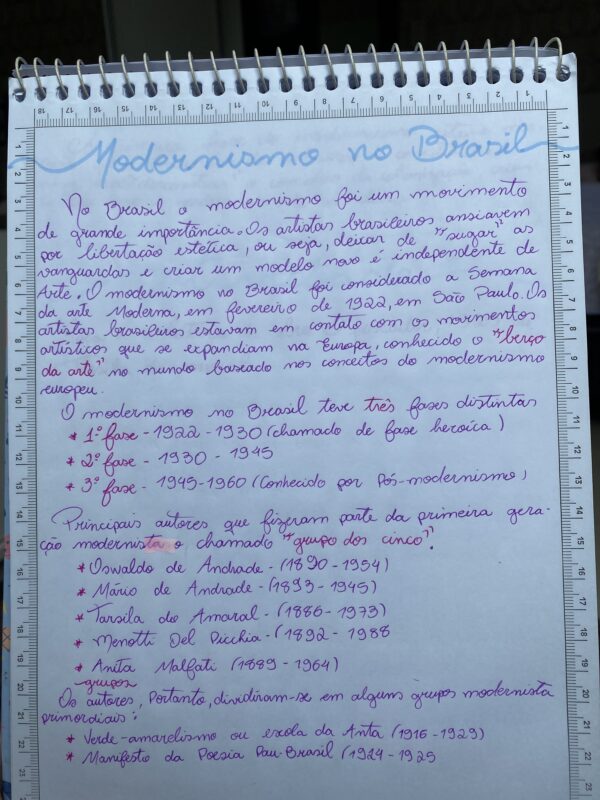 Modernismo no Brasil
No Brasil o modernismo foi um movimento
de grande importância. Os artistas brasileiros ansiavem
por libertação estética, ou seja, deixar de "sugar" as
vanguardas e criar um modelo novo é independente de
Arte. O modernismo no Brasil foi considerado a Semana
da arte Moderna, em fevereiro de 1922, em São Paulo. Os
artistas brasileiros estavam em contato com os movimentos
artísticos que se expandiam na Europa, conhecido o "berço
da arte" no mundo baseado nos conceitos do modernismo
europeu.
O modernismo no Brasil teve três fases distintas
* 1º fase - 1922 - 1930 (chamado de fase heroica)
* 2º fase - 1930 - 1945
* 3º fase - 1945-1960 (Conhecido por Pós-modernismo)
Principais autores, que fizeram parte da primeira gera-
ção modernista o chamado "grupo dos cinco".
* Oswaldo de Andrade - (1890 - 1954)
* Mário de Andrade - (1893 - 1945)
* Tarsila do Amaral - (1886 - 1973)
* Menotti Del Picchia - (1892 - 1988
* Anita Malfati (1889 - 1964)
grupos
Os autores, Portanto, dividiram-se em alguns grupos modernista
primordiais:
* Verde-amarelismo ou escola da Anta (1916 - 1929)
* Manifesto da Poesia Pau-Brasil (1924 - 1925